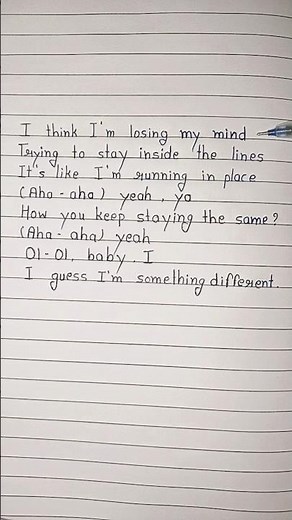 I think I'm losing my mind
Trying to stay inside the lines
It's like I'm running in place
(Aha - aha) yeah , ya
How you keep staying the same?
(Aha - aha) yeah
OI - OI, baby , I
I guess I'm something different.